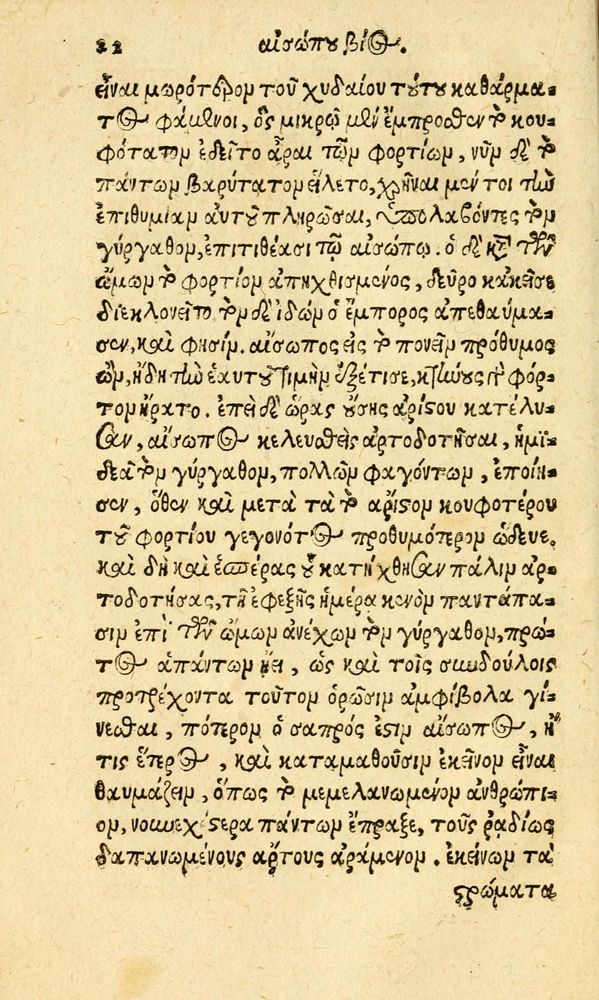 22 αἰσώπου βίος.
εἶναι μωρότερον τοῦ χυδαίου τούτου καθάρμα-
τος φάμενοι, ὃς μικρῷ μὲν ἔμπροσθεν τὸ κου-
φότατον ἐδεῖτο ἆραι τῶν φορτίων, νῦν δὲ τὸ
πάντων βαρύτατον εἵλετο, χρῆναι μέν τοι τὴν
ἐπιθυμίαν αὐτοῦ πληρῶσαι, ὑπολαβόντες τὸν
γύργαθον, ἐπιτιθέασι τῷ αἰσώπῳ. ὁ δὲ κατὰ τῶν
ὤμων τὸ φορτίον ἀπηχθισμένος, δεῦρο κἀκεῖσε
διεκλονεῖτο τὸν δὲ ἰδὼν ὁ ἔμπορος ἀπεθαύμα-
σεν, καὶ φησίν. αἴσωπος εἰς τὸ πονεῖν πρόθυμος
ὢν, ἤδη τὴν ἑαυτοῦ τιμὴν ἐξέτισε, κτήνους γὰρ φόρ-
τον ἤρατο. ἐπεὶ δὲ ὥρας οὔσης ἀρίστου κατέλυ-
σαν, αἴσωπος κελευσθεὶς ἀρτοδοτῆσαι, ἡμϊ-
δεᾶ τὸν γύργαθον, πολλῶν φαγόντων, ἐποίη-
σεν, ὅθεν καὶ μετὰ τὰ τὸ ἄριστον κουφοτέρου
τοῦ φορτίου γεγονότος προθυμότερον ὥδευε.
καὶ δὴ καὶ ἑσπέρας οὗ κατήχθησαν πάλιν ἀρ-
τοδοτήσας, τῇ ἐφεξῆς ἡμέρᾳ κενὸν παντάπα-
σιν ἐπὶ τῶν ὤμων ἀνέχων τὸν γύργαθον, πρῶ-
τος ἁπάντων ᾔει, ὡς καὶ τοῖς συνδούλοις
προτρέχοντα τοῦτον ὁρῶσιν ἀμφίβολα γί-
νεσθαι, πότερον ὁ σαπρός ἐστιν αἴσωπος, ἤ
τις ἕτερος, καὶ καταμαθοῦσιν ἐκεῖνον εἶναι
θαυμάζειν, ὅπως τὸ μεμελανωμένον ἀνθρώπι-
ον, νουνεχέστερα πάντων ἔπραξε, τοὺς ῥᾳδίως
δαπανωμένους ἄρτους ἀράμενον. ἐκείνων τὰ
στρώματα